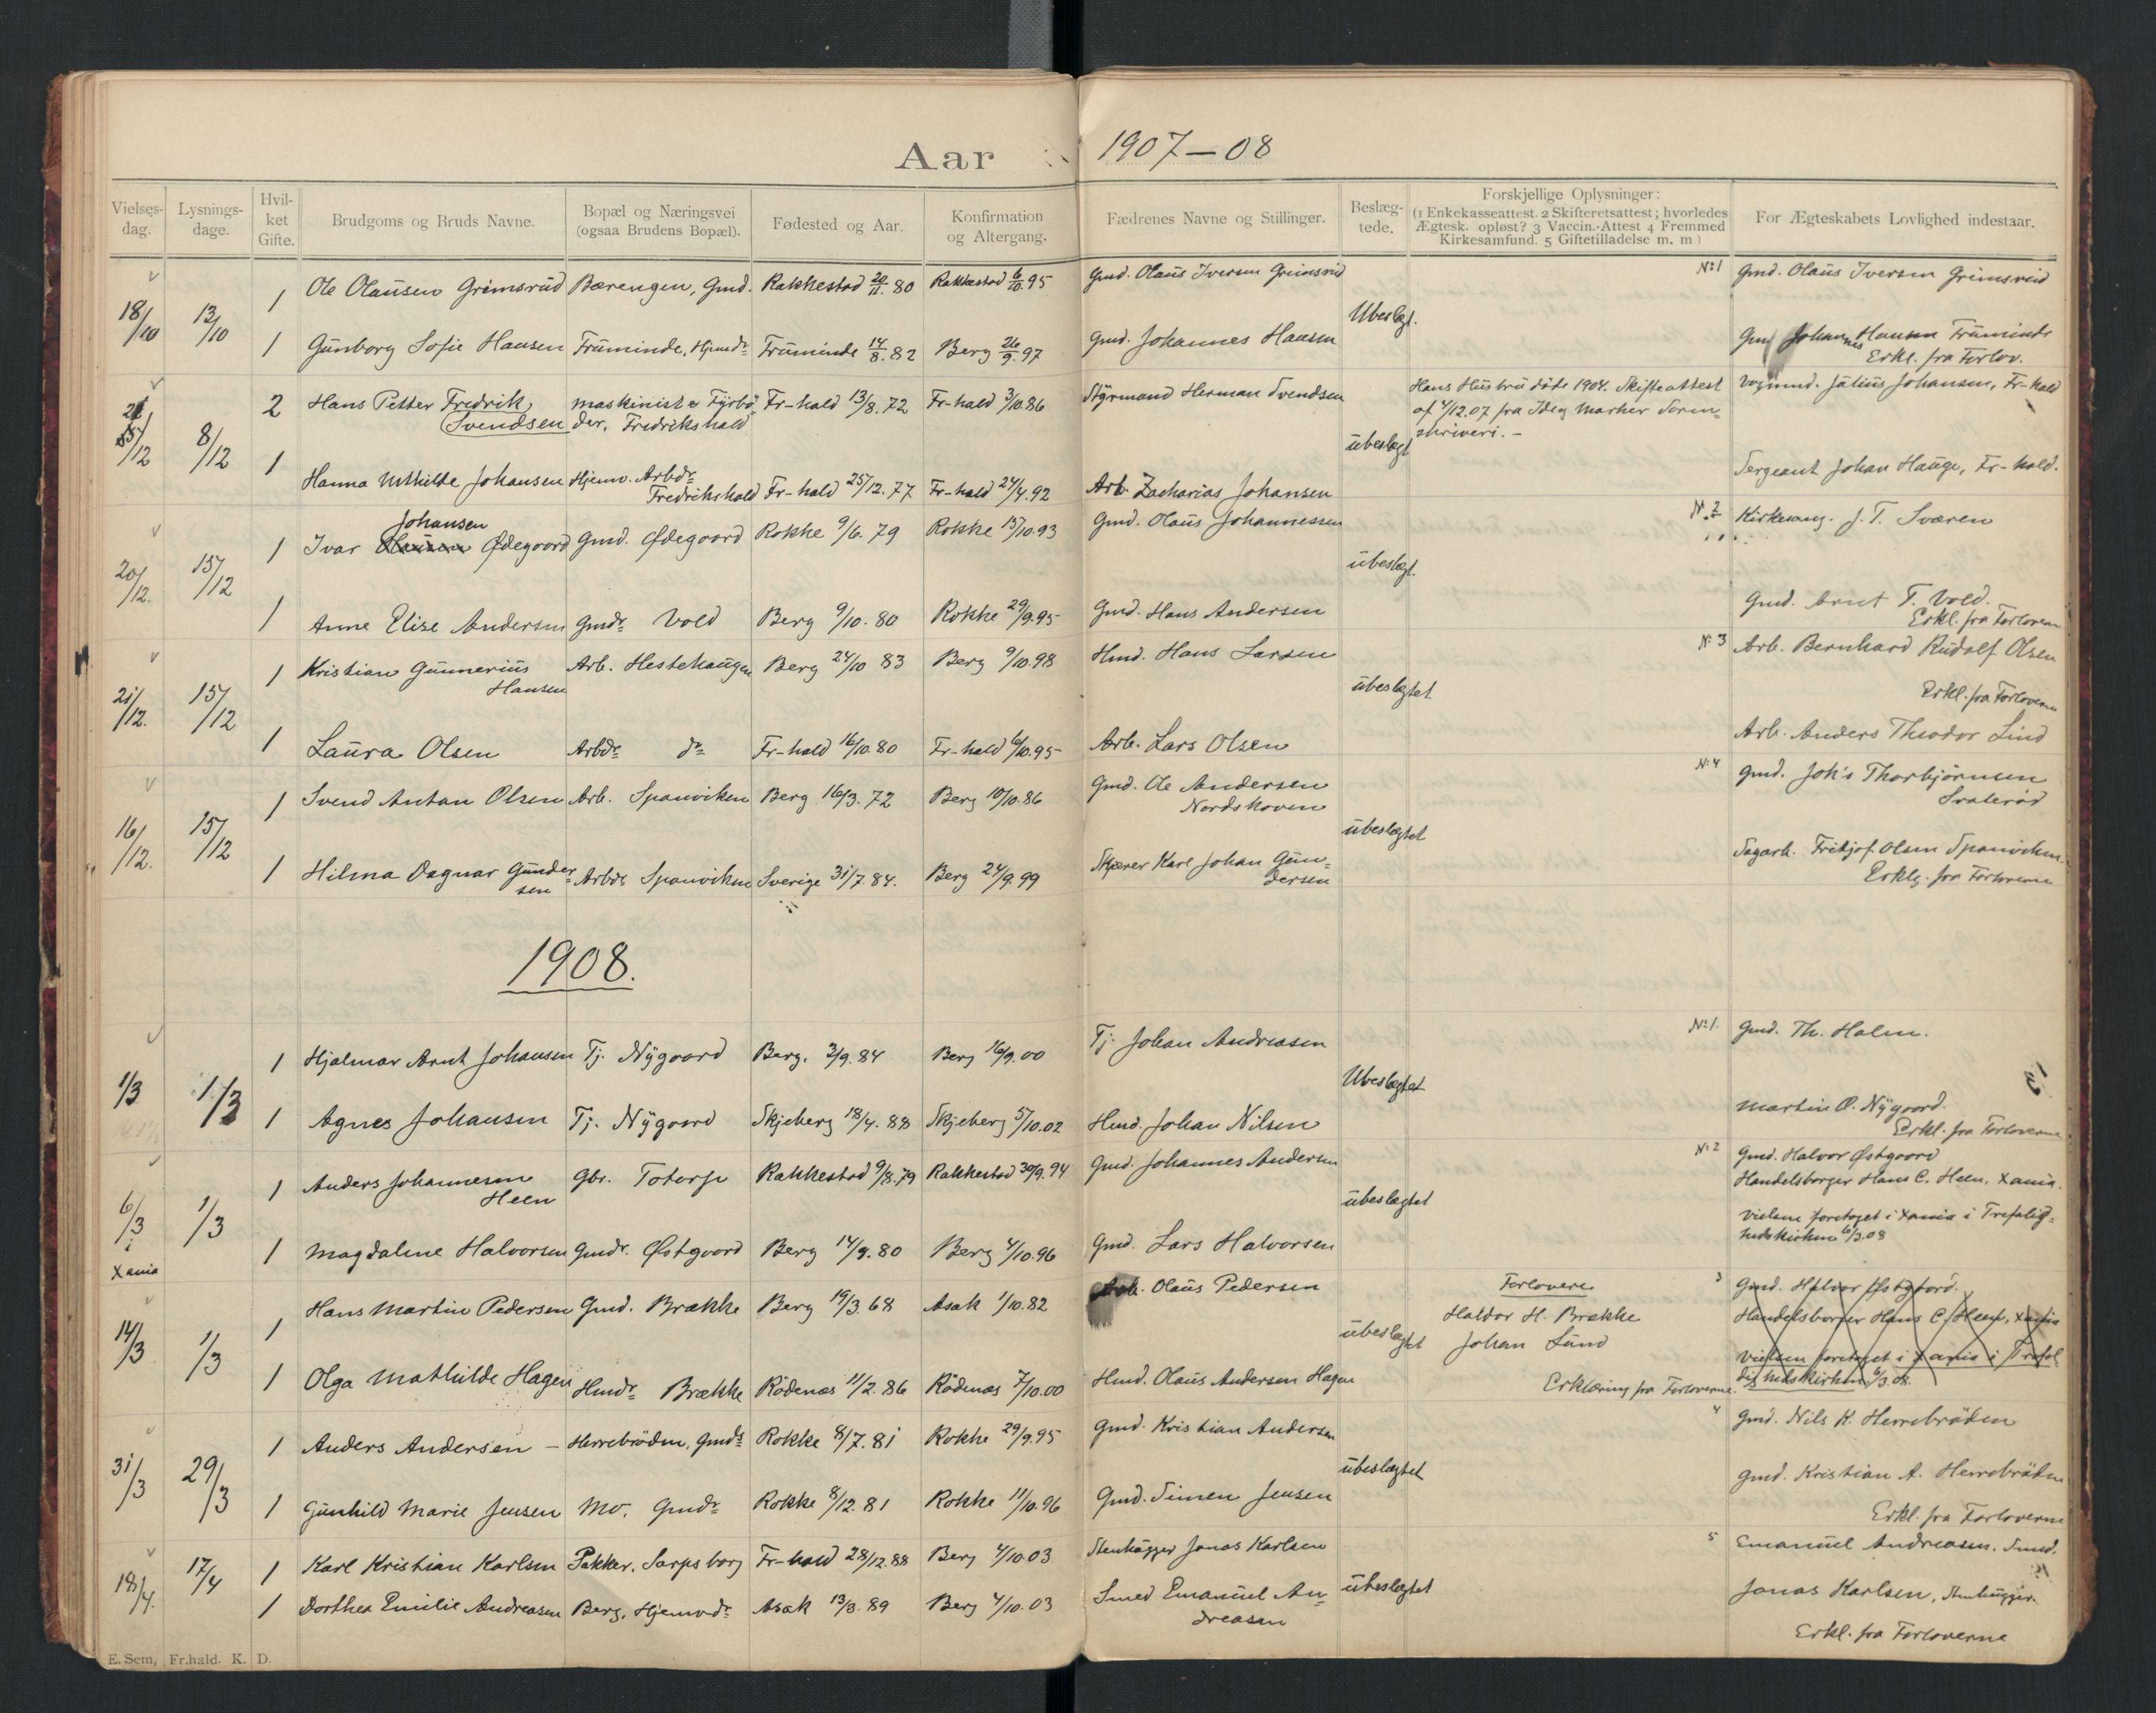 Aar 1907-08
Vielses-dag.
Lysnings-dage.
Hvil-ket Gifte.
Brudgoms og Bruds Navne.
Bopæl og Næringsvei (ogsaa Brudens Bopæl).
Fødested og Aar.
Konfirmation og Altergang.
Fædrenes Navne og Stillinger.
Beslæg-tede.
Forskjellige Oplysninger:
(1 Enkekasseattest. 2 Skifteretsattest; hvorledes
Ægtesk. opløst? 3 Vaccin.-Attest 4 Fremmed
Kirkesamfund. 5 Giftetilladelse m. m)
For Ægteskabets Lovlighed indestaar.
18/10 13/10
1 Ole Olaüsen Grimsrüd Bærengen, Gmd. Rakkestad 20/11. 80 Rakkestad 6/10. 95 Gmd. Olaüs Iversen Grimsrüd No 1 Gmd. Olaüs Iversen Grimsrüd
Ubeslægt.
1 Günborg Sofie Hansen Trüminde, Hjemdr Trüminde 14/8. 82 Berg 26/9. 97 Gmd. Johannes Hansen Gmd Johannes Hansen Trüminde
Erkl. fra Forlov.
8/12
2 Hans Petter Fredrik Svendsen maskinist & Fyrbøder, Fredrikshald Fr-hald 13/8. 72 Fr-hald 3/10. 86 Styrmand Herman Svendsen Hans Hüstrü døde 1904. Skifteattest
af 4/12.07 fra Ide og Marker Soren=
skriveri. -
Vognmd. Jülius Johansen, Fr-hald
übeslægt
1 Hanna Mthilde Johansen Hjemv. Arbdr Fredrikshald Fr-hald 25/12. 77 Fr-hald 24/4. 92 Arb. Zacharias Johansen Sergeant Johan Haüge, Fr-hald.
20/12. 15/12
1 Ivar Johansen Ødegaard Gmd. Ødegaard Rokke 9/6. 79 Rokke 15/10. 93 Gmd. Olaüs Johannessen No 2 Kirkesang. J. T. Sværen
übeslægt.
1 Anne Elise Andersen Gmdr Vold Berg 9/10. 80 Rokke 29/9. 95 Gmd. Hans Andersen Gmd. Arnt T. Vold.
Erkl. fra Forloverne
21/12. 15/12
1 Kristian Günnerius Hansen Arb. Hestehaugen Berg 24/10 83 Berg 9/10. 98 Hmd. Hans Larsen No 3 Arb. Bernhard Rüdolf Olsen
übeslægtet Erkl. fra Forloverne
1 Laüra Olsen Arbdr do Fr-hald 16/10. 80 Fr-hald 6/10. 95 Arb. Lars Olsen Arb. Anders Theodor Lind
16/12. 15/12
1 Svend Anton Olsen Arb. Spanviken Berg 16/3. 72 Berg 10/10. 86 Gmd. Ole Andersen Nordskoven No 4 Gmd. Johs Thorbjørnsen Svalerød
übeslægtet
1 Hilma Dagnar Gündersen Arbdr Spanviken Sverige 31/7. 84. Berg 24/9. 99 Skjærer Karl Johan Gün=dersen Sagarb. Fritjof Olsen Spanviken.
Erklg. fra Forloverne
1908.
1/3 1/3
1 Hjalmar Arnt Johansen Tj. Nygaard Berg. 3/9. 84 Berg 16/9. 00 Tj. Johan Andreasen No 1. Gmd. Th. Holm.
Ubeslægtet
1 Agnes Johansen Tj. Nygaard Skjeberg 18/4. 88 Skjeberg 5/10. 02 Hmd. Johan Nilsen Martin O. Nygaard.
Erkl. fra Forloverne
6/3 i Xania 1/3
1 Anders Johannesen Heen Gbr. Toterp Rakkestad 9/8. 79 Rakkestad 30/9. 94 Gmd. Johannes Andersen No 2 Gmd. Halvor Østgaard
Handelsborger Hans C. Heen, Xania.
übeslægtet Vielsen foretaget i Xania i Trefolig=
hedskirken 6/3.08
1 Magdalene Halvorsen Gmdr. Østgaard Berg 14/9. 80 Berg 4/10. 96 Gmd. Lars Halvorsen
14/3 1/3
1 Hans Martin Pedersen Gmd. Brække Berg 19/3. 68 Asak 1/10. 82 Arb. Olaüs Pedersen Forlovere 3 Gmd. Halvor Østgaard.
Haldor H. Brække Handelsborger Hans C. Heen, Xania
übeslægtet Johan Lünd Vielsen foretaget i Xania i Trefol
1 Olga Mathilde Hagen Hmdr Brække Rødenæs 11/2. 86 Rødenæs 7/10. 00 Hmd. Olaüs Andersen Hagen Erklæring fra Forloverne. dighedskirken 6/3.08.
31/3 29/3
1 Anders Andersen - Herrebrøden, Gmds Rokke 8/7. 81 Rokke 29/9. 95 Gmd. Kristian Andersen 4 Gmd. Nils K. Herrebrøden
übeslægtet
1 Günhild Marie Jensen Mo. Gmdr Rokke 8/12. 81 Rokke 11/10. 96 Gmd. Simen Jensen Gmd. Kristian A. Herrebrøden
Erkl. fra Forloverne
18/4. 17/4
1 Karl Kristian Karlsen Pakker. Sarpsborg Fr-hald 28/12. 88 Berg 4/10. 03 Stenhügger Jonas Karlsen 5 Emanüel Andreasen. Smed.
übeslægtet
1 Dorthea Emilie Andreasen Berg, Hjemvdr Asak 13/3. 89 Berg 4/10. 03 Smed Emanüel An=dreasen Jonas Karlsen, Stenhügger.
Erkl. fra Forloverne
E. Sem, Fr.hald. K. D.